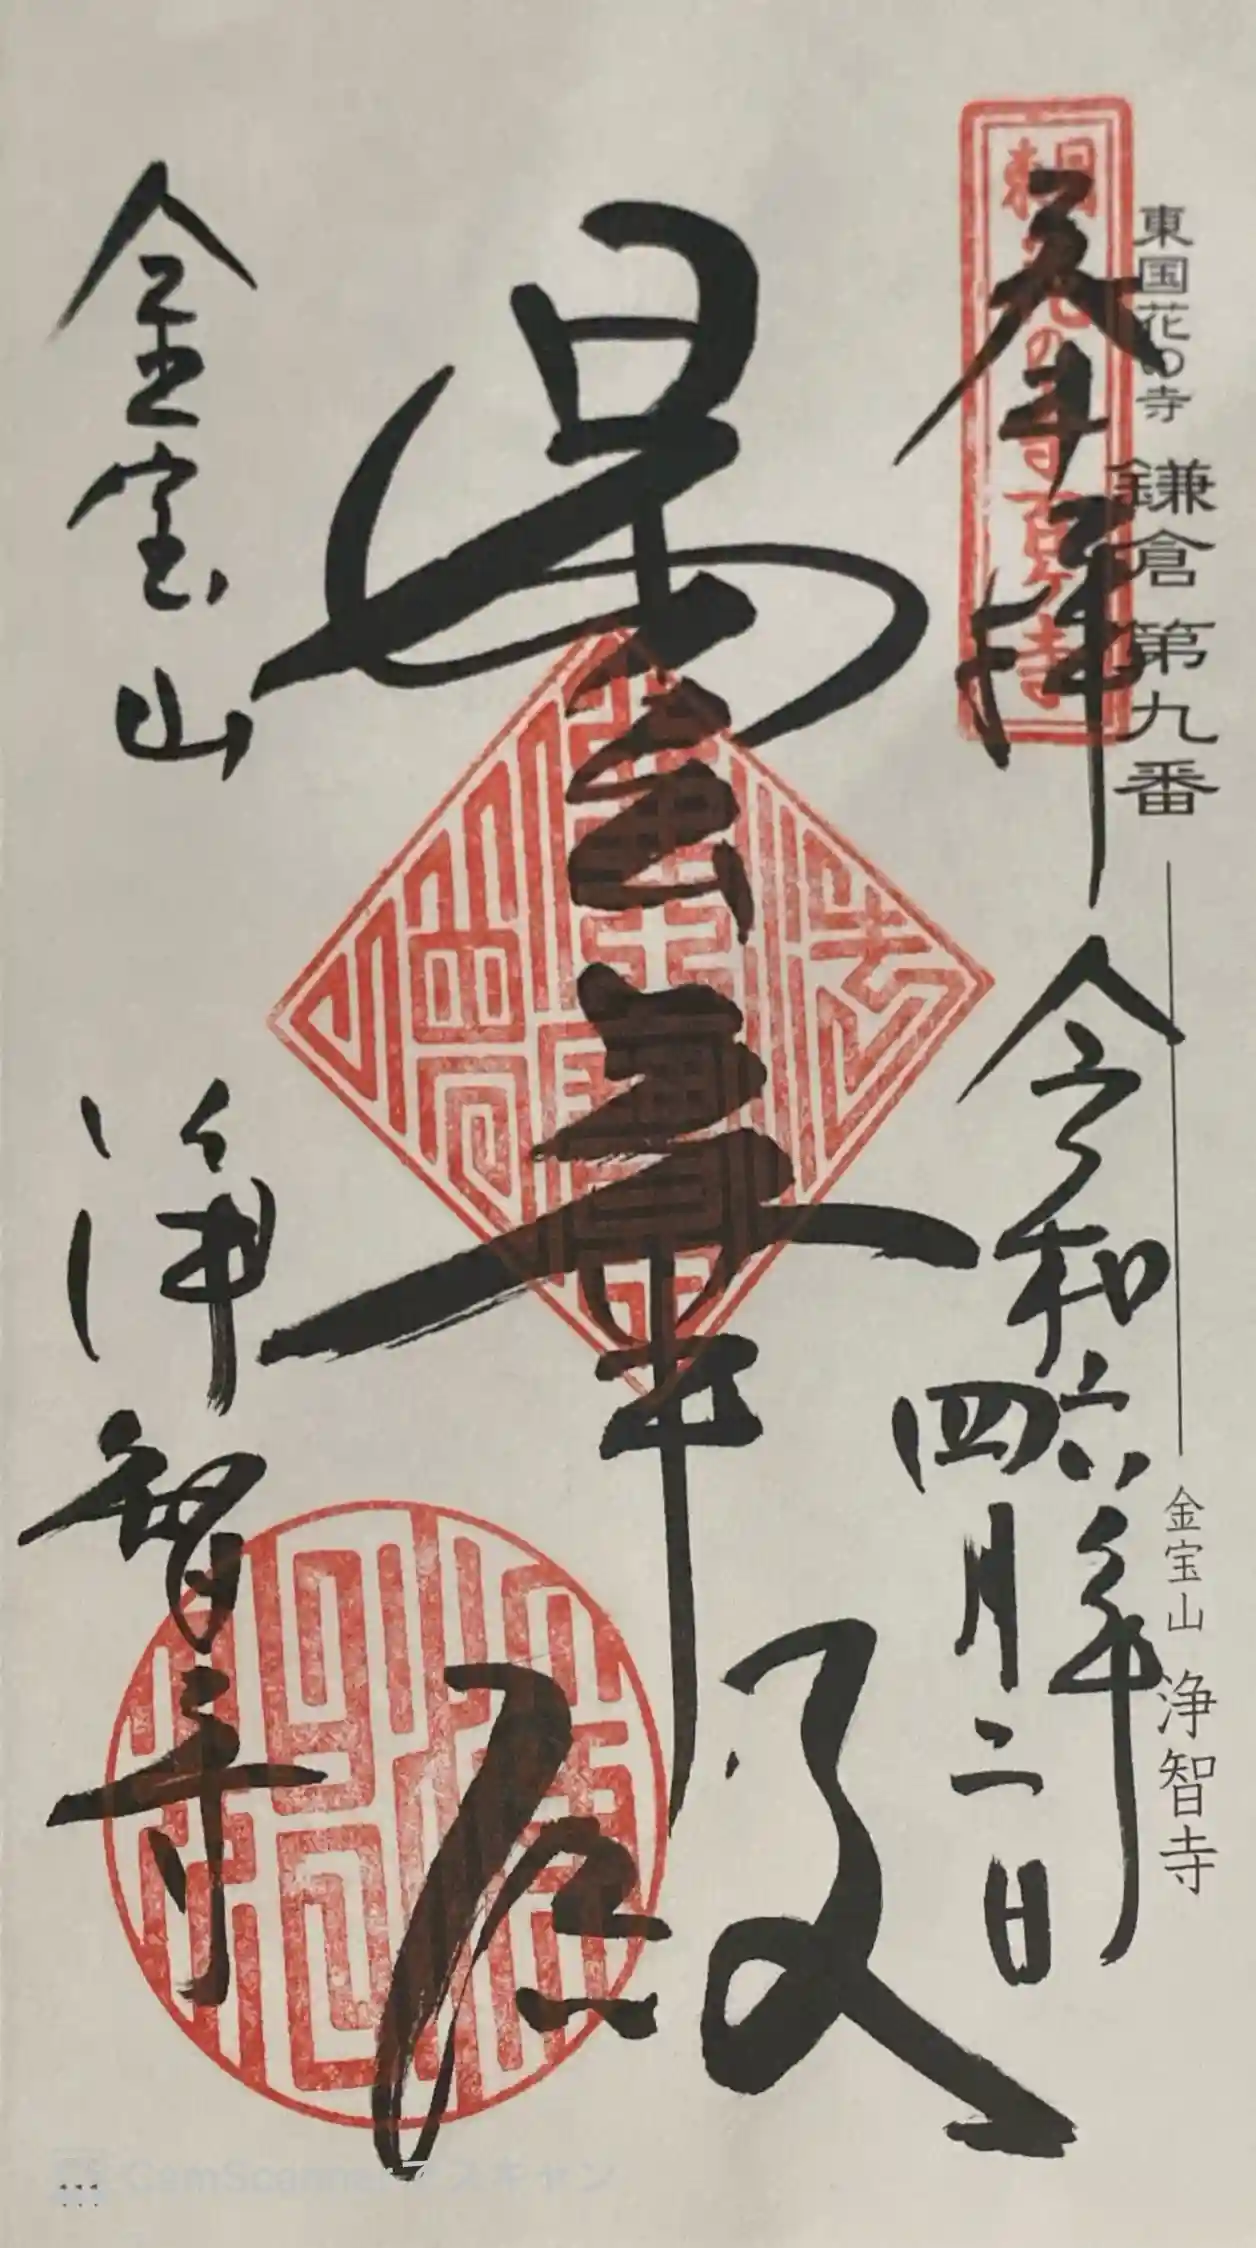 東国花の寺 鎌倉第九番
金宝山 浄智寺
奉拝
令和六年
四月二日
曇華殿
金宝山
浄智寺
CamScannerでスキャン